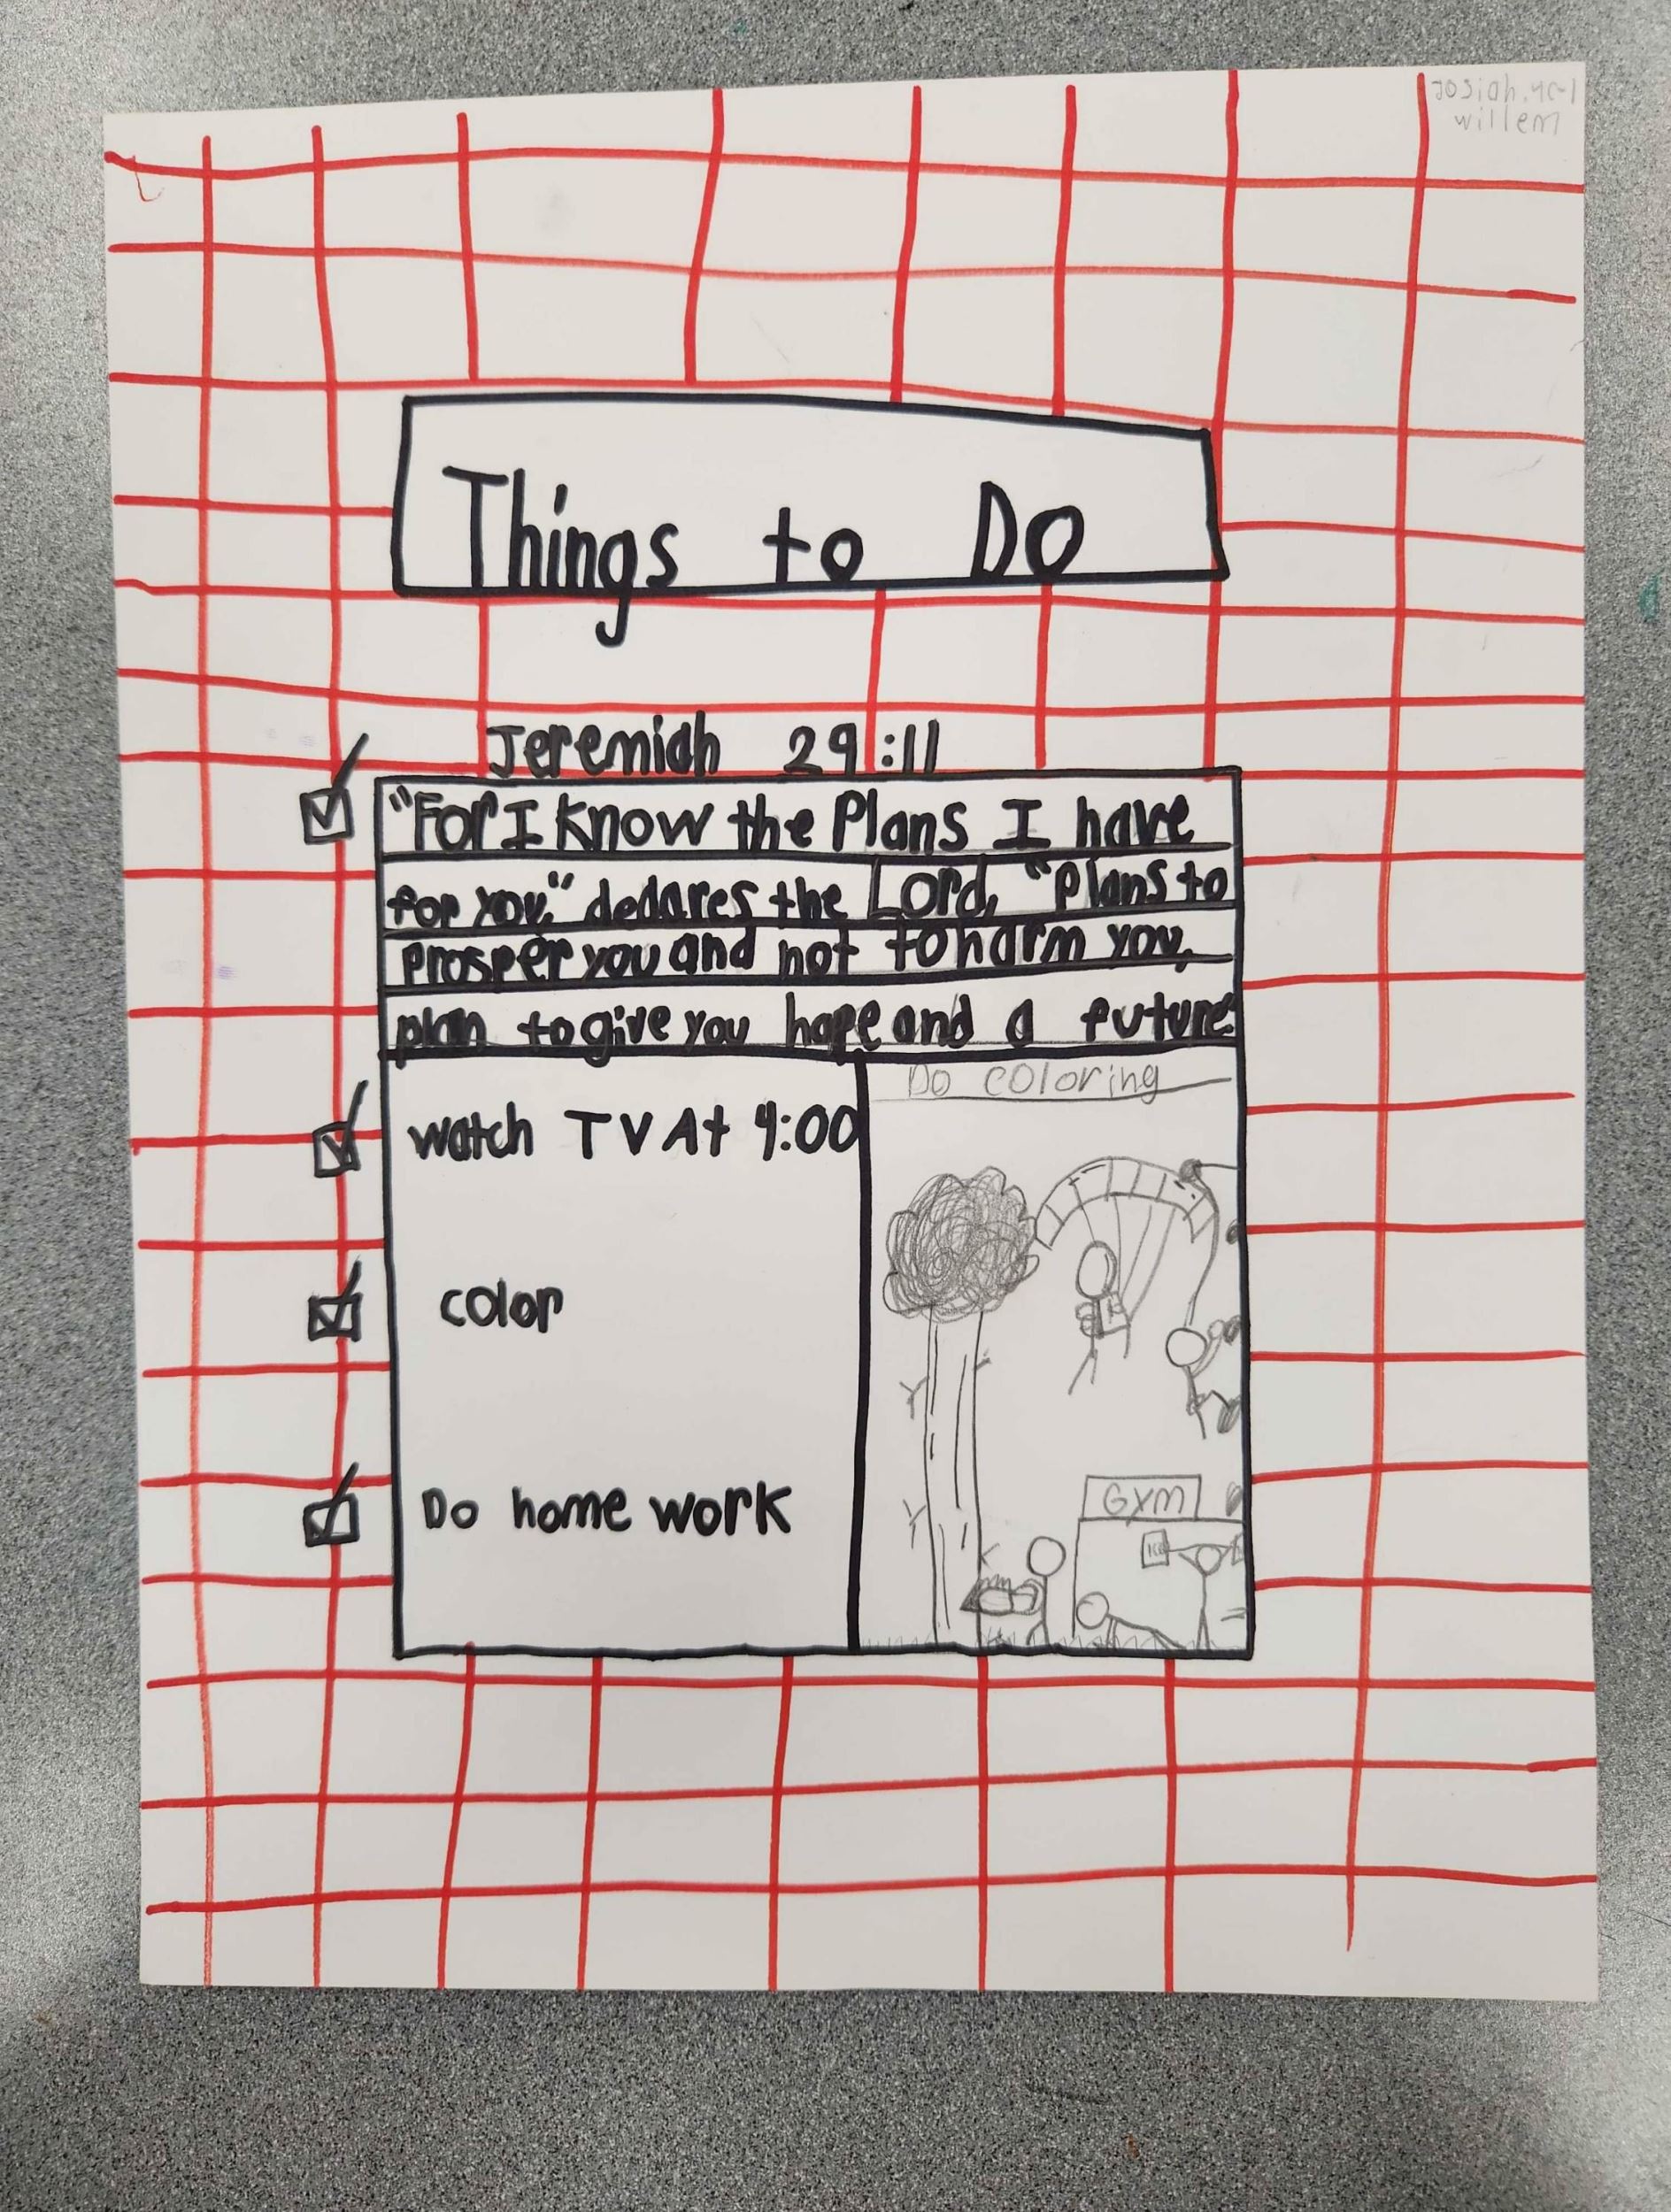 Josiah.4C-1
willem
Things to Do
Jeremiah 29:11
"For I know the Plans I have
for you," declares the Lord, "Plans to
Prosper you and not to harm you,
plan to give you hope and a future"
Do coloring
watch TV At 4:00
color
Do home work
Gym